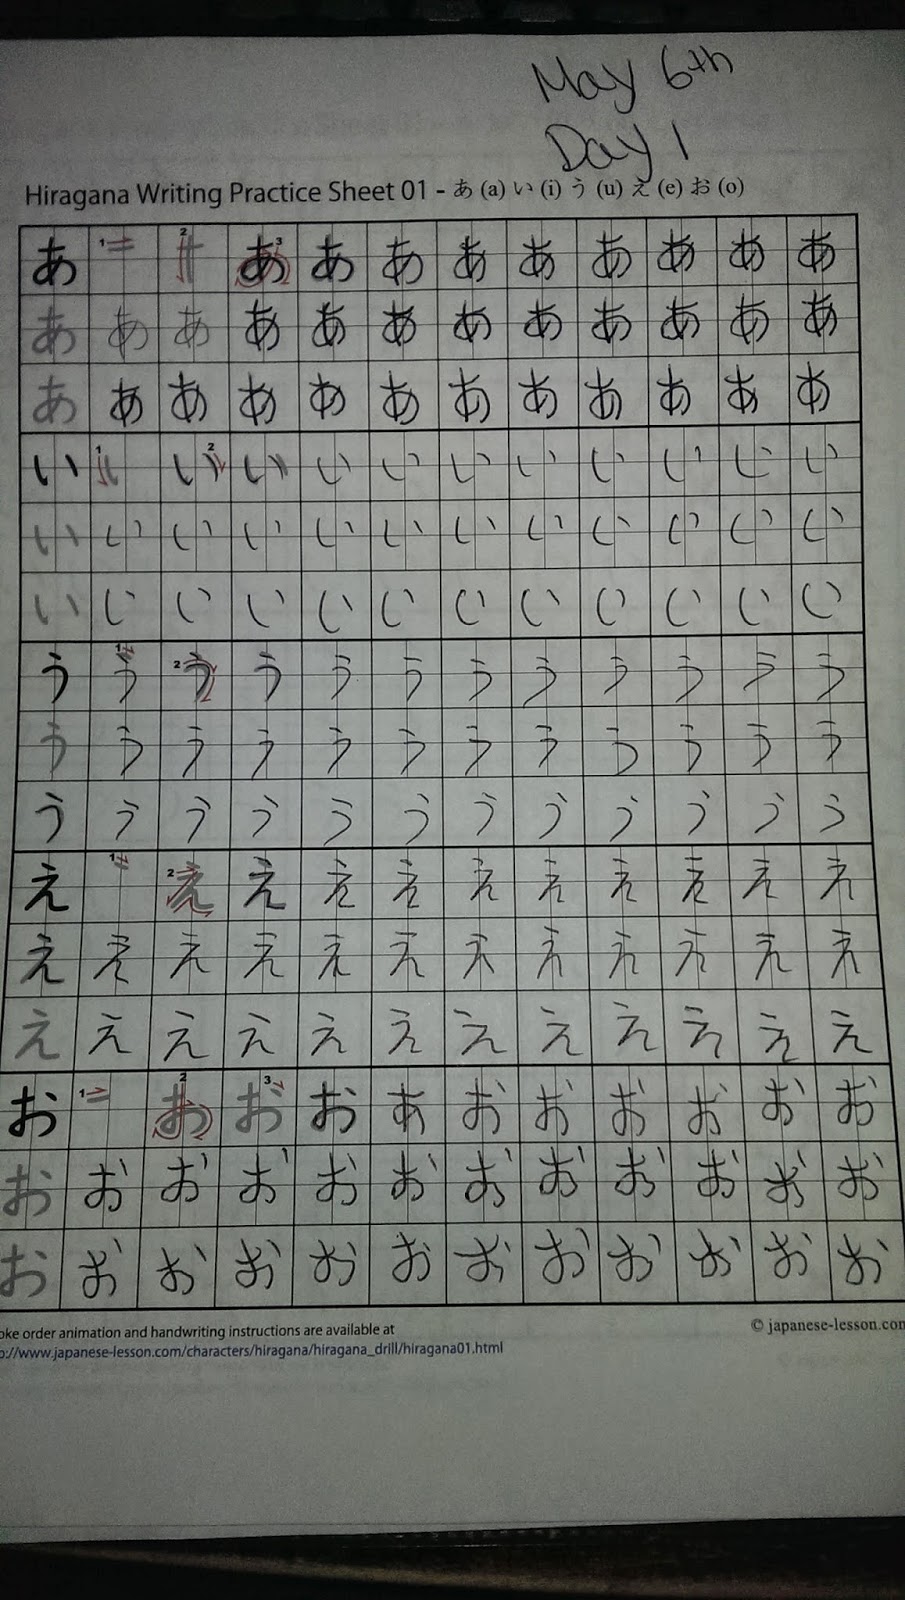 May 6th
Day 1
Hiragana Writing Practice Sheet 01 - あ (a) い (i) う (u) え (e) お (o)
あ 1 2 あ 3 あ あ あ あ あ あ あ あ
あ あ あ あ あ あ あ あ あ あ あ あ
あ あ あ あ あ あ あ あ あ あ あ あ
い 1 い 2 い い い い い い い い い
い い い い い い い い い い い い
い い い い い い い い い い い い
う 1 う 2 う う う う う う う う う う
う う う う う う う う う う う う
う う う う う う う う う う う う
え 1 2 え え え え え え え え え え
え え え え え え え え え え え え
え え え え え え え え え え え え
お 1 2 お 3 お お あ お お お お お お
お お お お お お お お お お お お
お お お お お お お お お お お お
oke order animation and handwriting instructions are available at
© japanese-lesson.com
p://www.japanese-lesson.com/characters/hiragana/hiragana_drill/hiragana01.html